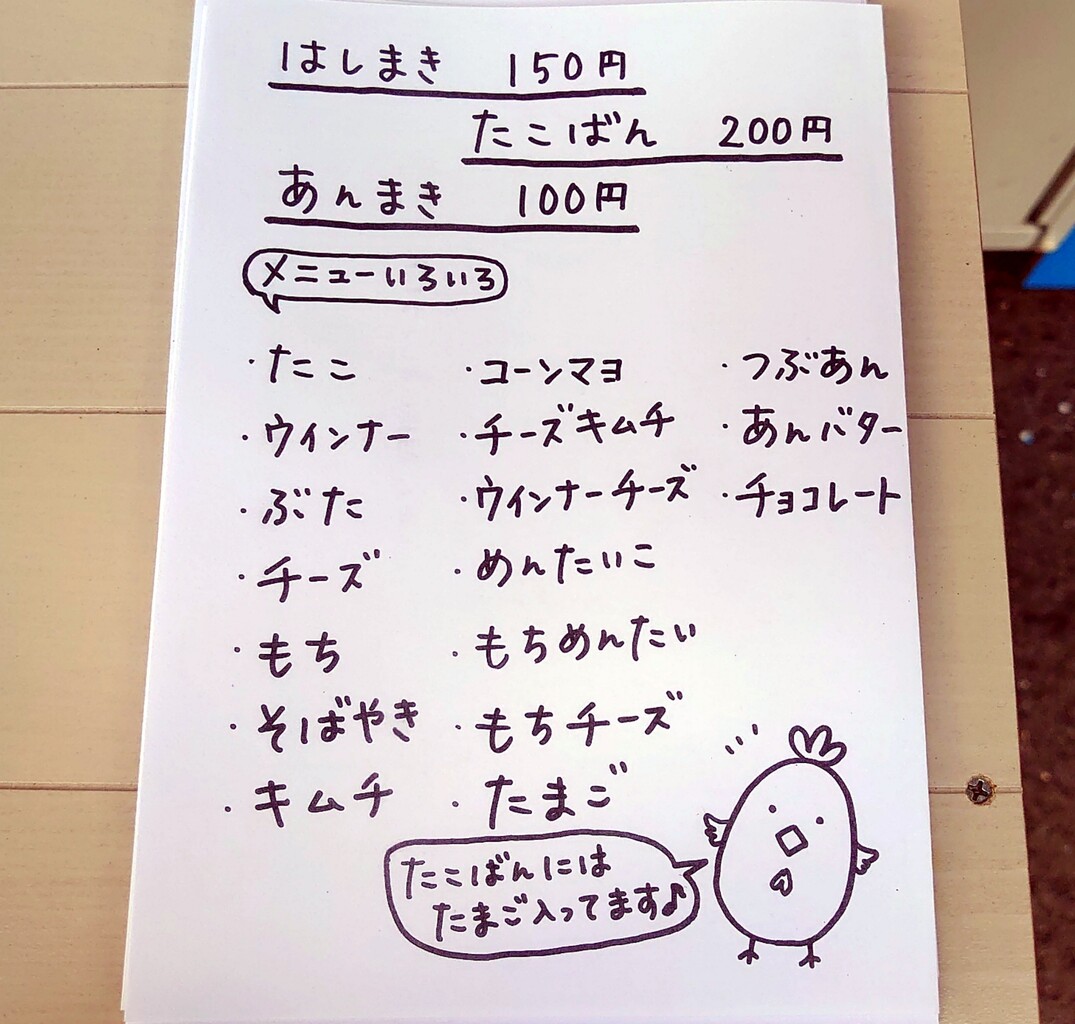 はしまき 150円
たこばん 200円
あんまき 100円
メニューいろいろ
・たこ
・ウインナー
・ぶた
・チーズ
・もち
・そばやき
・キムチ
・コーンマヨ
・チーズキムチ
・ウインナーチーズ
・めんたいこ
・もちめんたい
・もちチーズ
・たまご
・つぶあん
・あんバター
・チョコレート
たこばんには
たまご入ってます♪